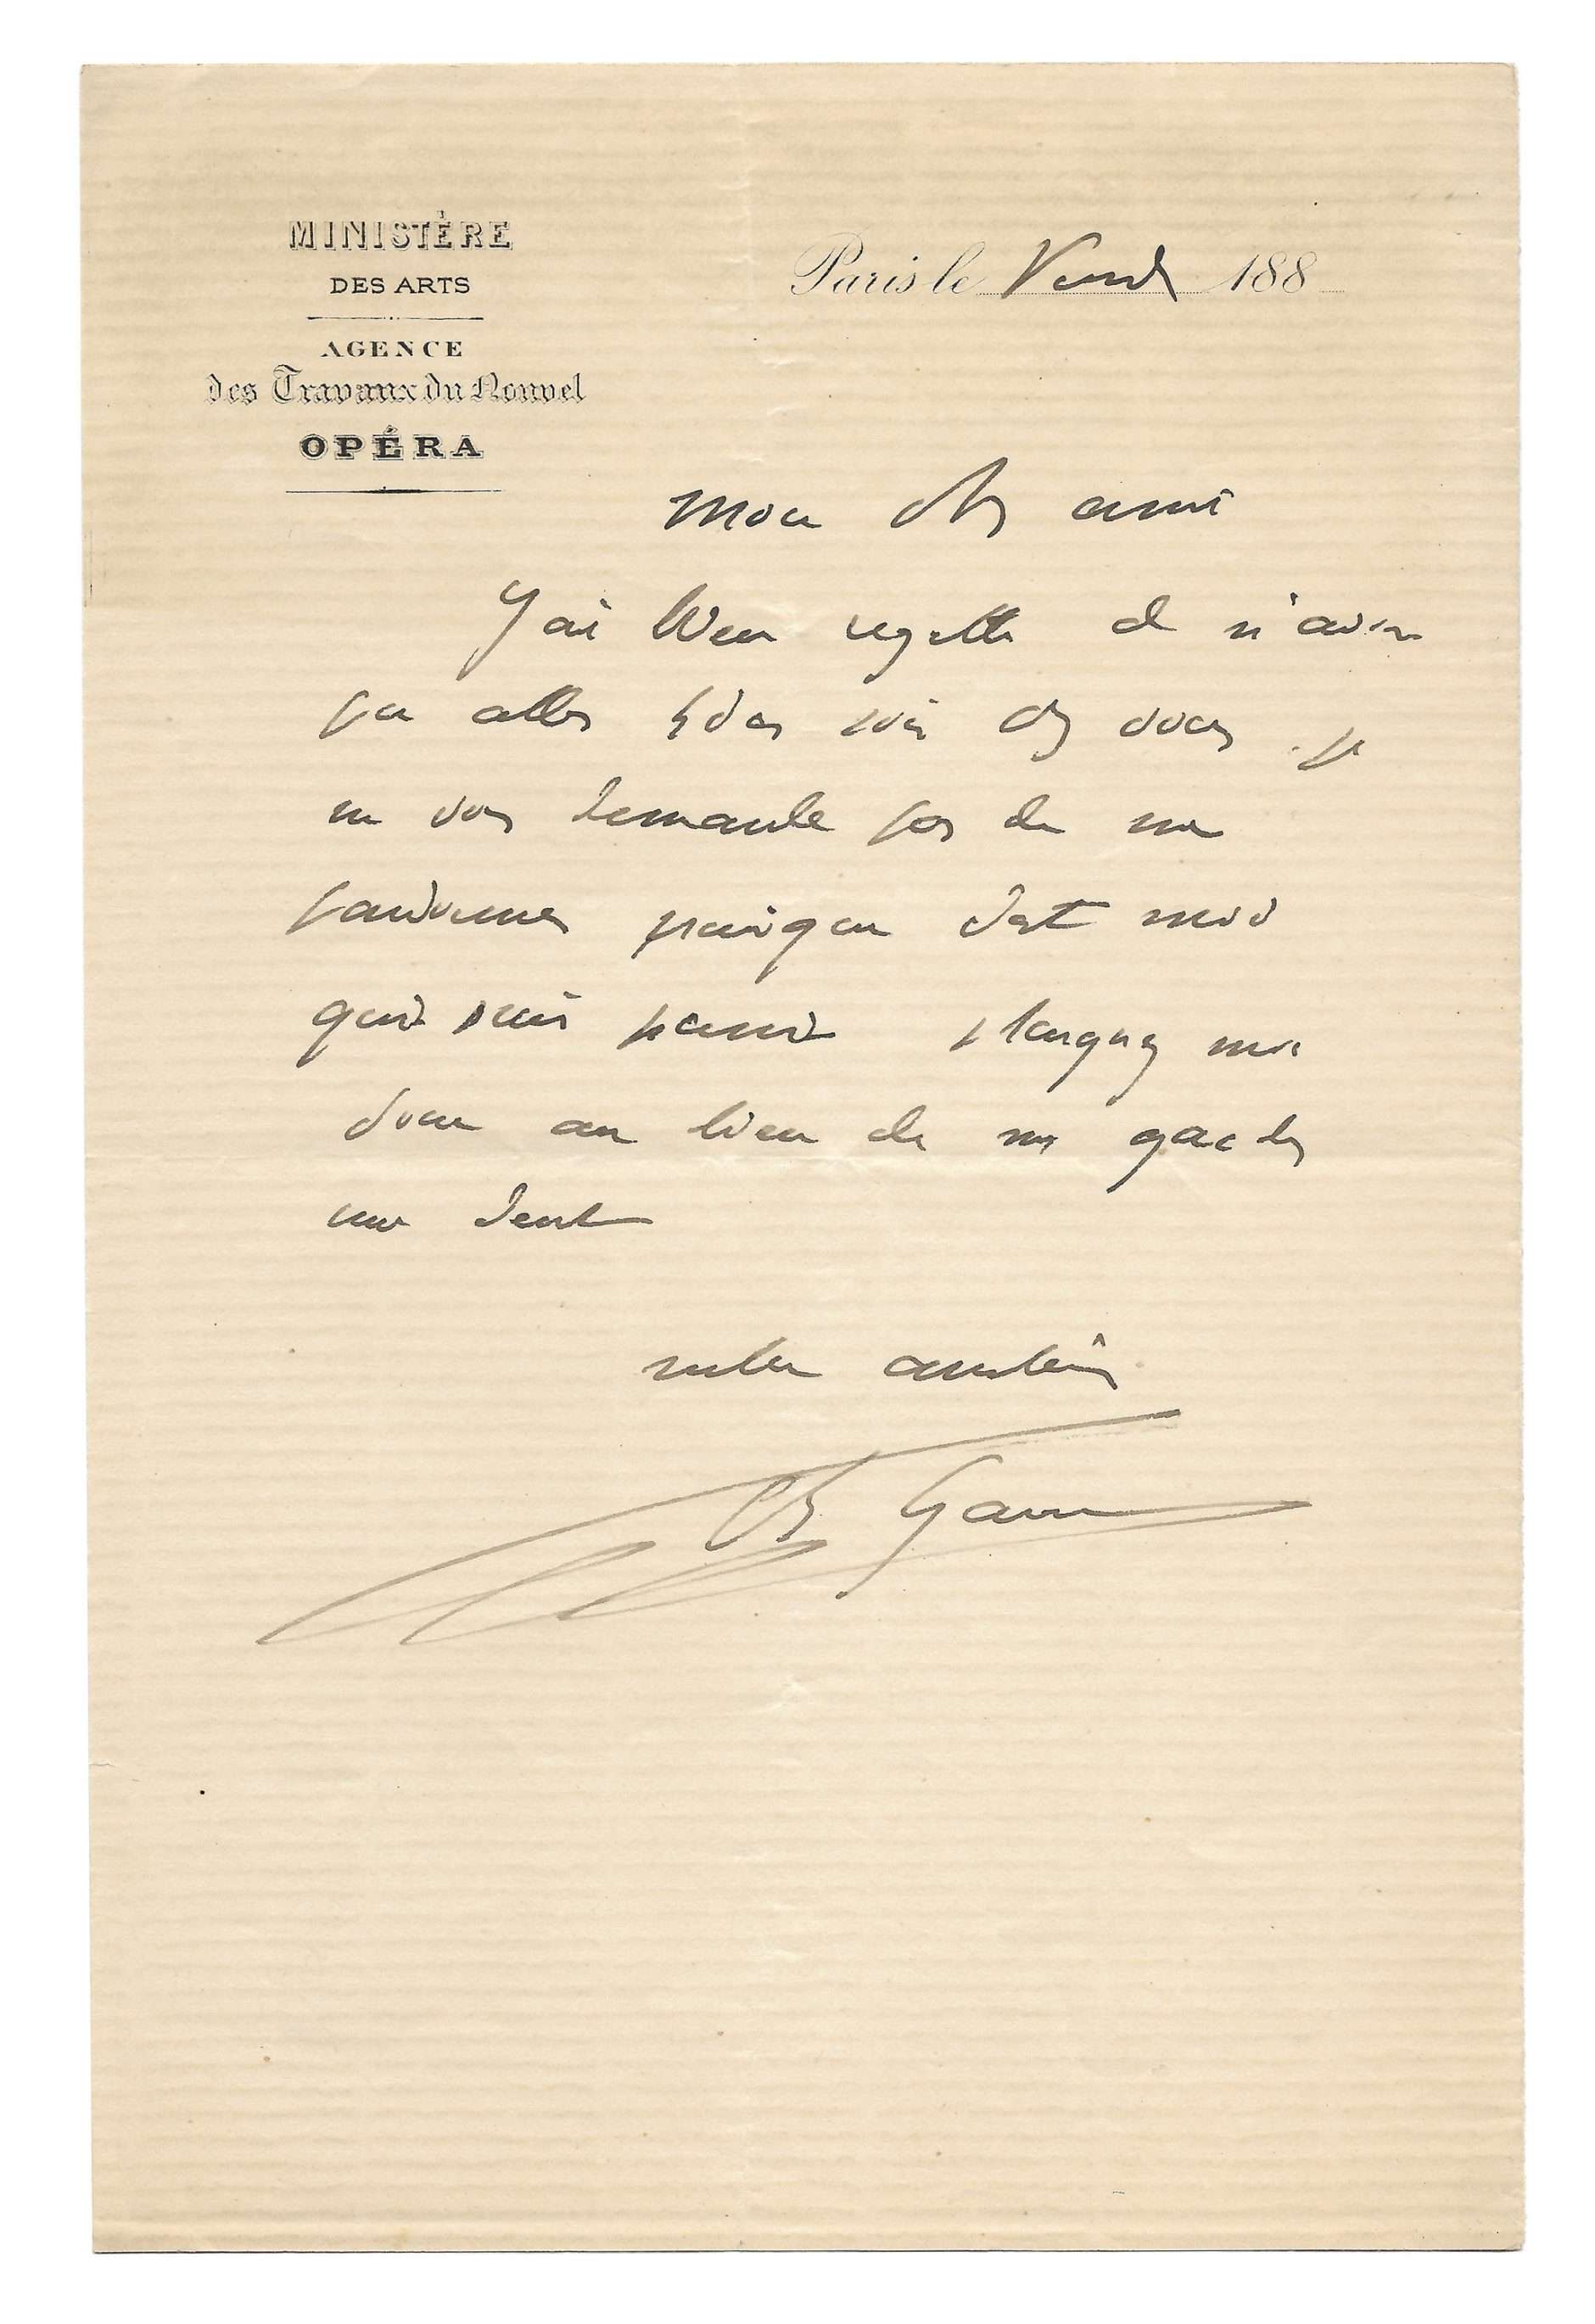 MINISTÈRE
DES ARTS
AGENCE
des Travaux du Nouvel
OPÉRA
Paris le Vend 188
Mon ch ami
J'ai bien regretté de n'avoir
pu aller hier soir chez vous. je
ne vous demande pas de me
pardonner puisque c'est moi
qui suis puni plaignez moi
donc au lieu de me garder
une dent
votre
Ch Garnier